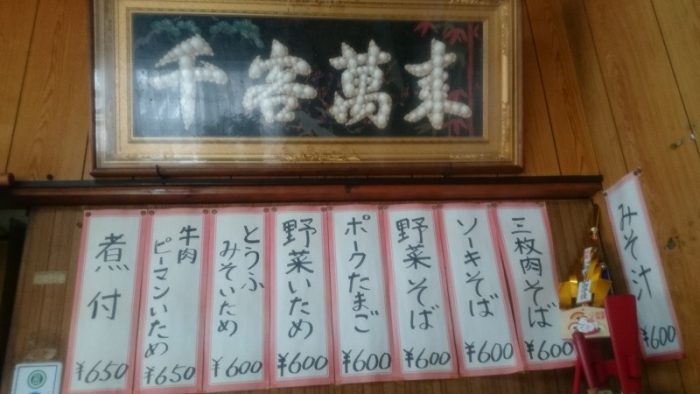 千客萬来
みそ汁
¥600
三枚肉そば
¥600
ソーキそば
¥600
野菜そば
¥600
ポークたまご
¥600
野菜いため
¥600
とうふ
みそいため
¥600
牛肉
ピーマンいため
¥650
煮付
¥650